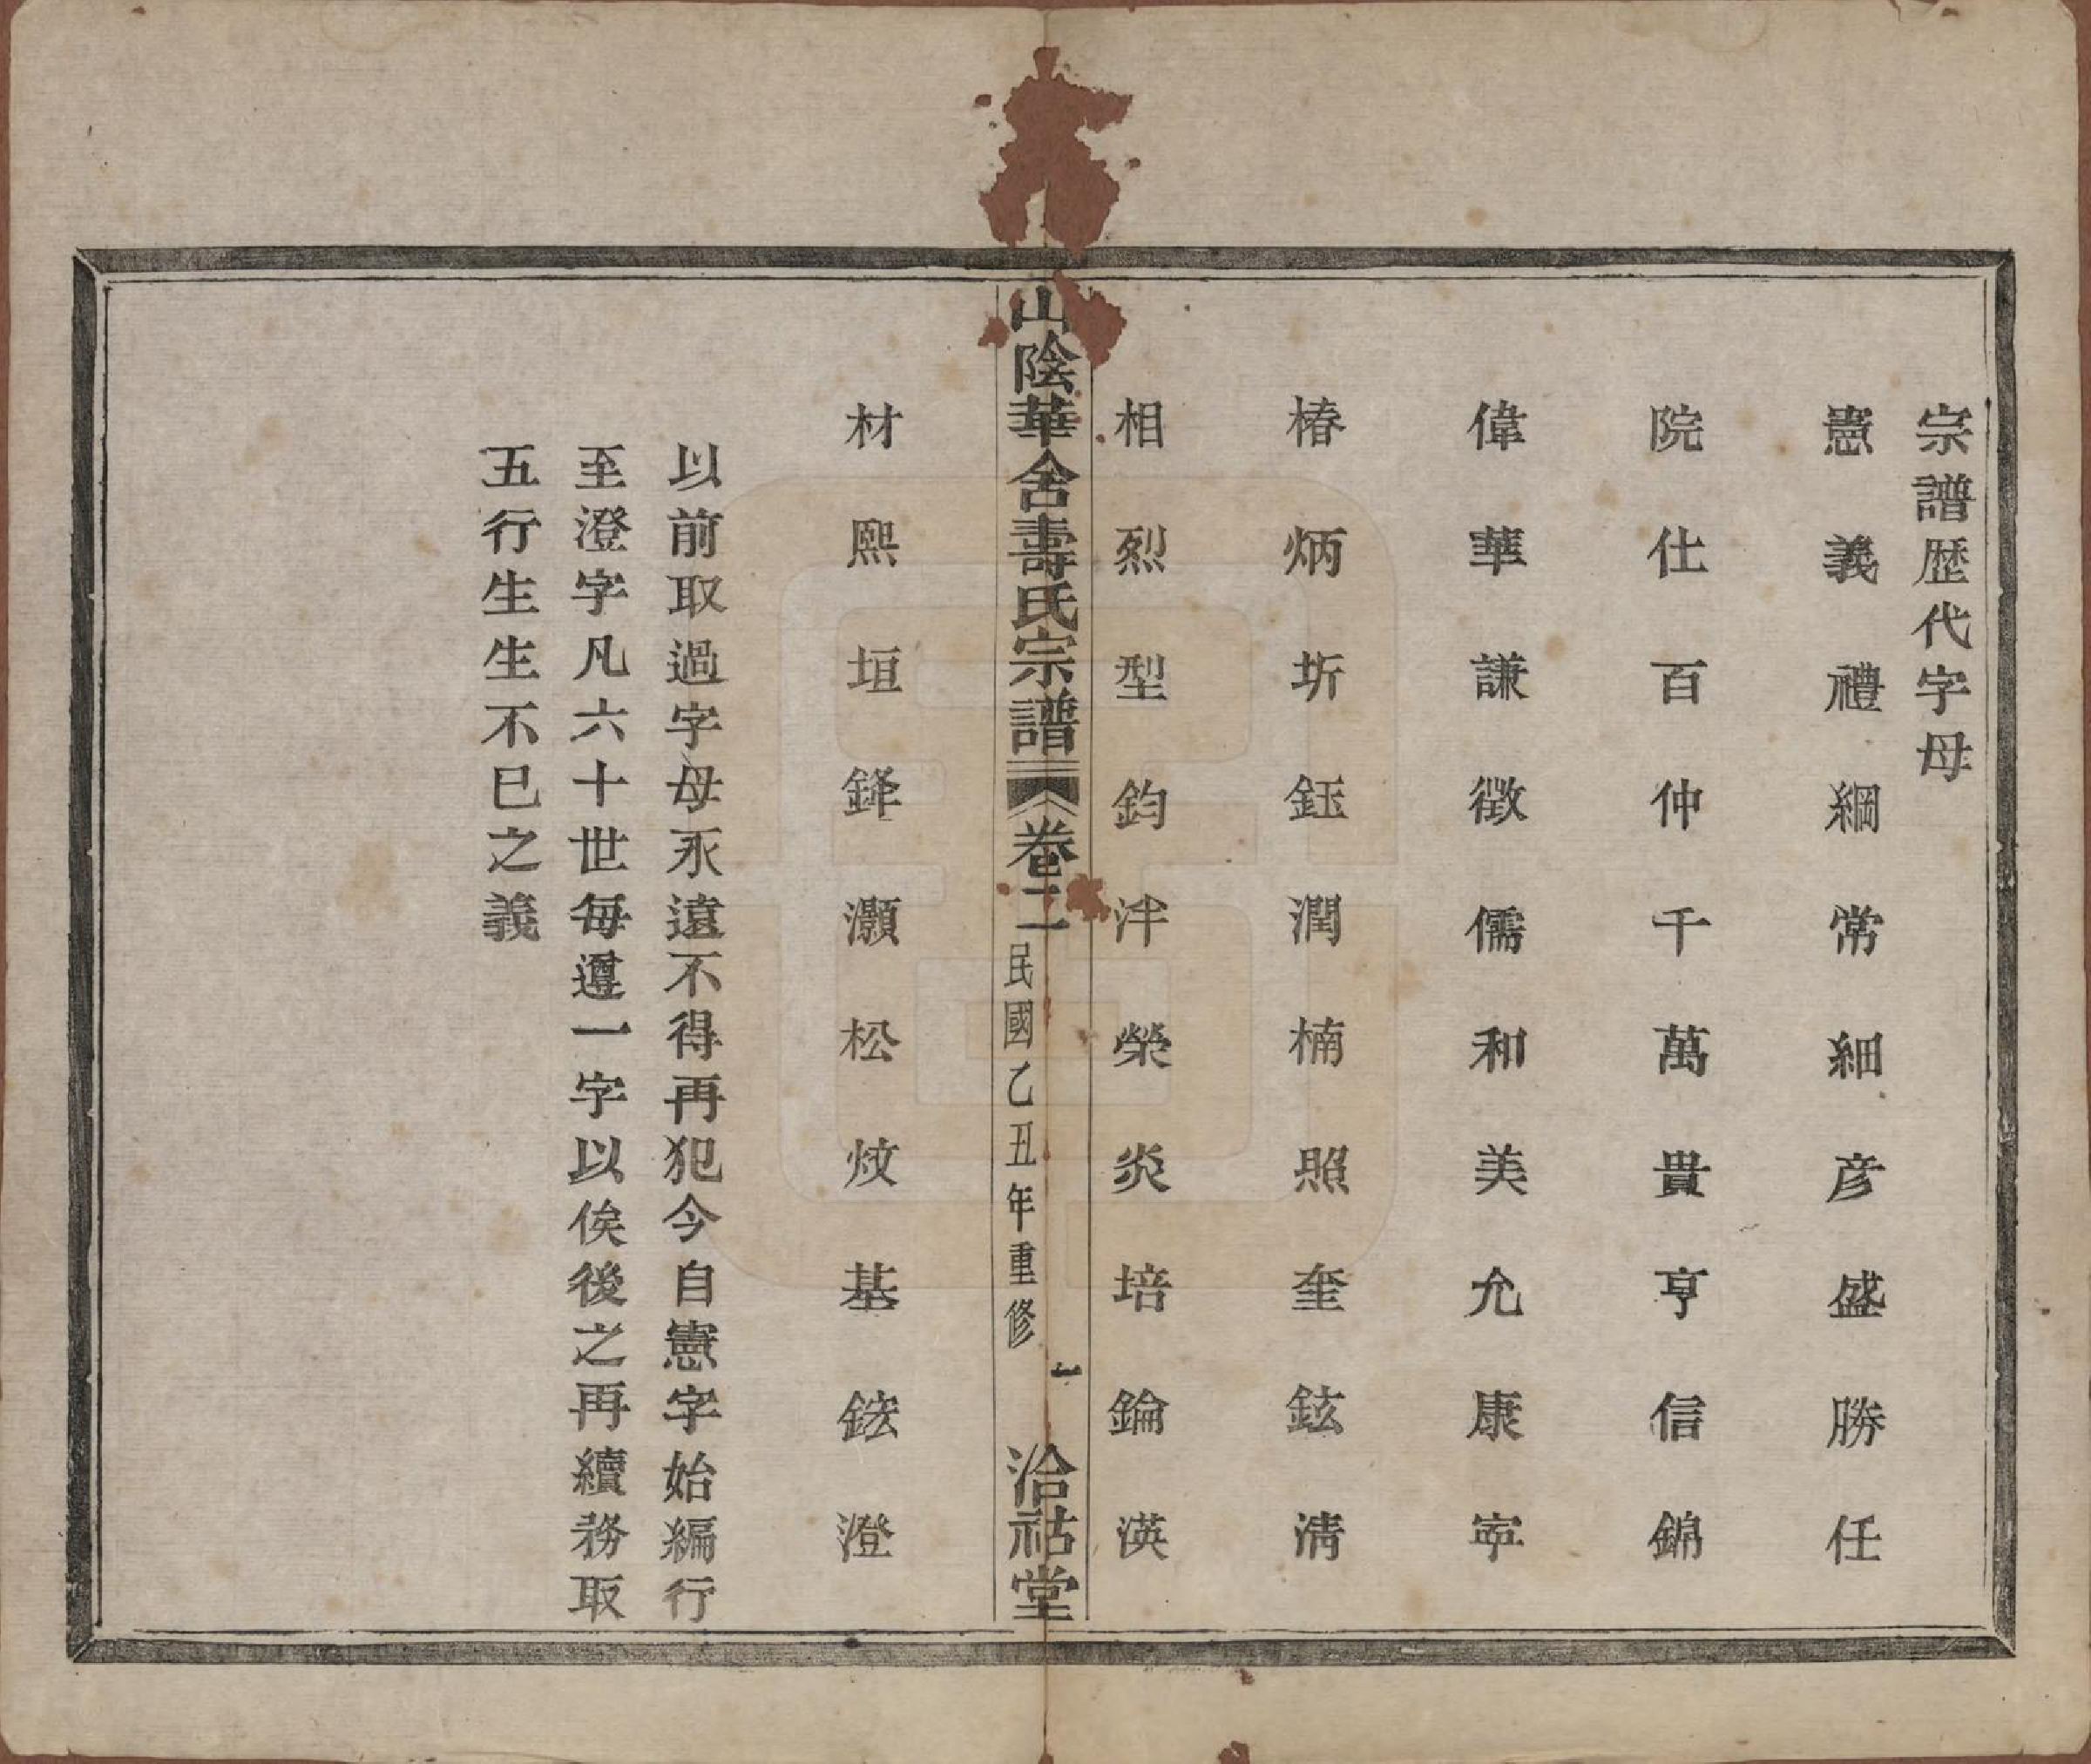 宗譜歷代字母
憲義禮綱常細彦盛勝任
院仕百仲千萬貴亨信錦
偉華謙徵儒和美允康寕
椿炳圻鈺潤楠照奎鉉清
相烈型鈞泮榮炎培錀漢
山陰華舍壽氏宗譜 卷二 民國乙丑年重修 一 洽祜堂
材熙垣鋒灝松炆基鋐澄
以前取過字母永遠不得再犯今自憲字始編行
至澄字凡六十世每遵一字以俟後之再續務取
五行生生不已之義